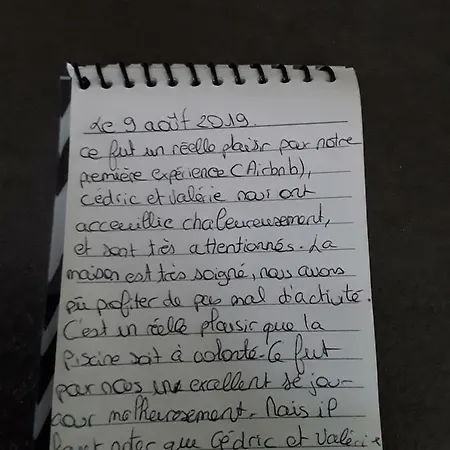 Le 9 août 2019.
ce fut un réelle plaisir pour notre
première expérience (Airbnb),
Cédric et Valérie nous ont
acceuillie chaleureusement,
et sont très attentionnés. La
maison est très soigné, nous avons
pû profiter de pas mal d'activité.
C'est un réelle plaisir que la
piscine soit à volonté. Ce fut
pour nous une excellent séjou-
malheureusement. Mais il
noter que Cédric et Valérie